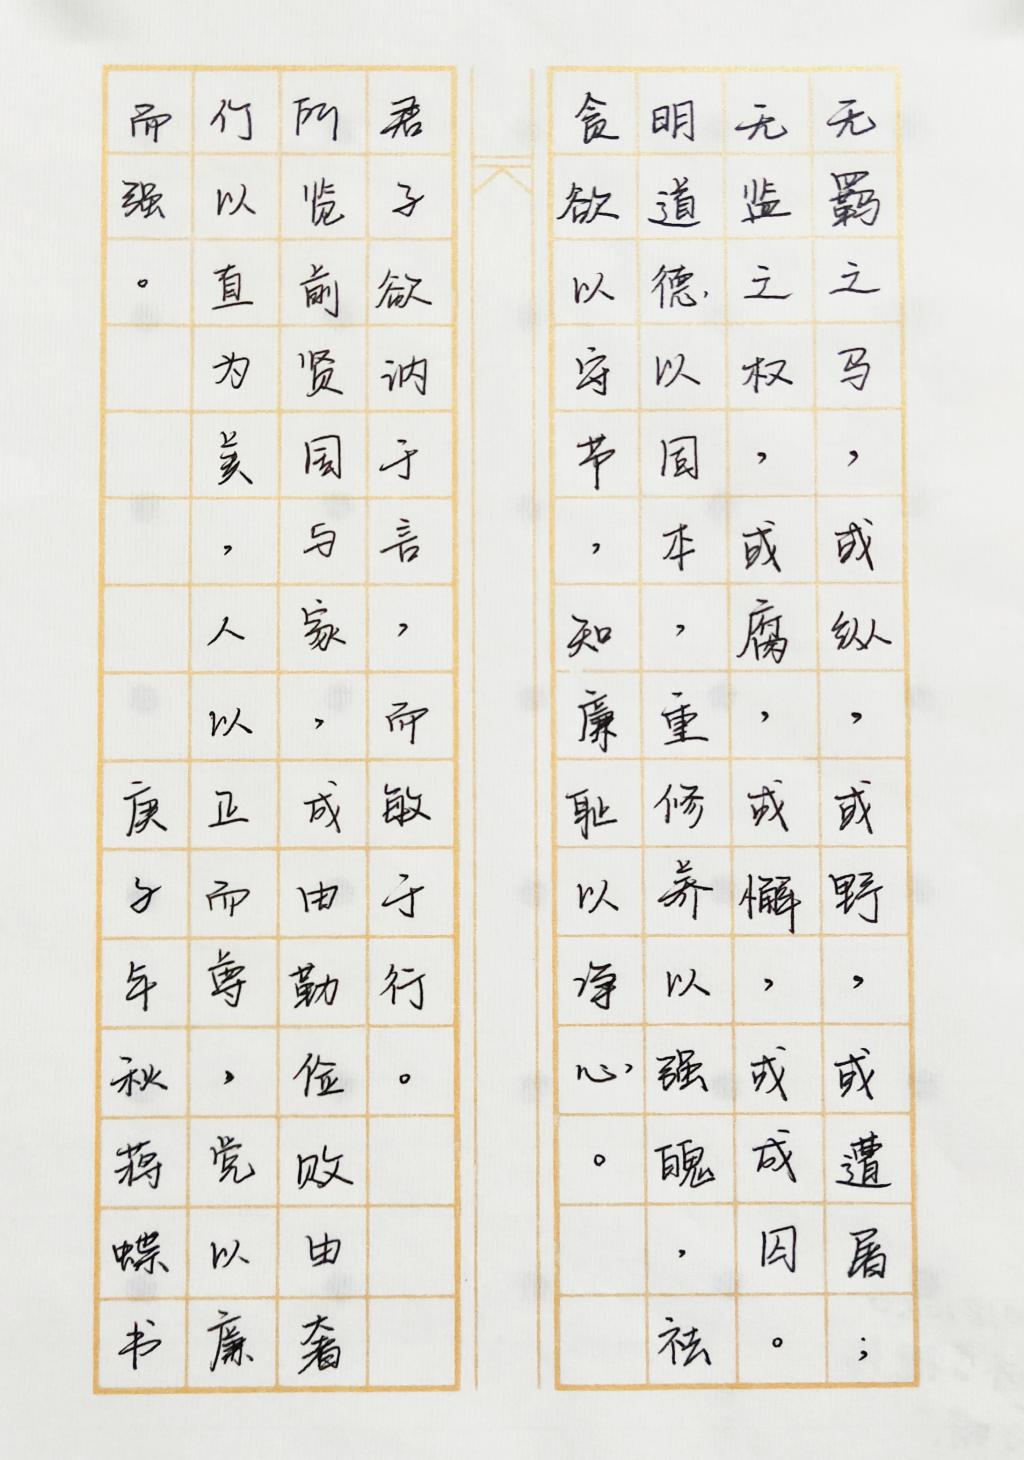 无羁之马，或纵，或野，或遭屠；
无监之权，或腐，或懈，或成囚。
明道德以固本，重修养以强魄，祛
贪欲以守节，知廉耻以诤心。
君子欲讷于言，而敏于行。
所览前贤国与家，成由勤俭败由奢
行以直为美，人以正而尊，党以廉
而强。
庚子年秋蒋蝶书